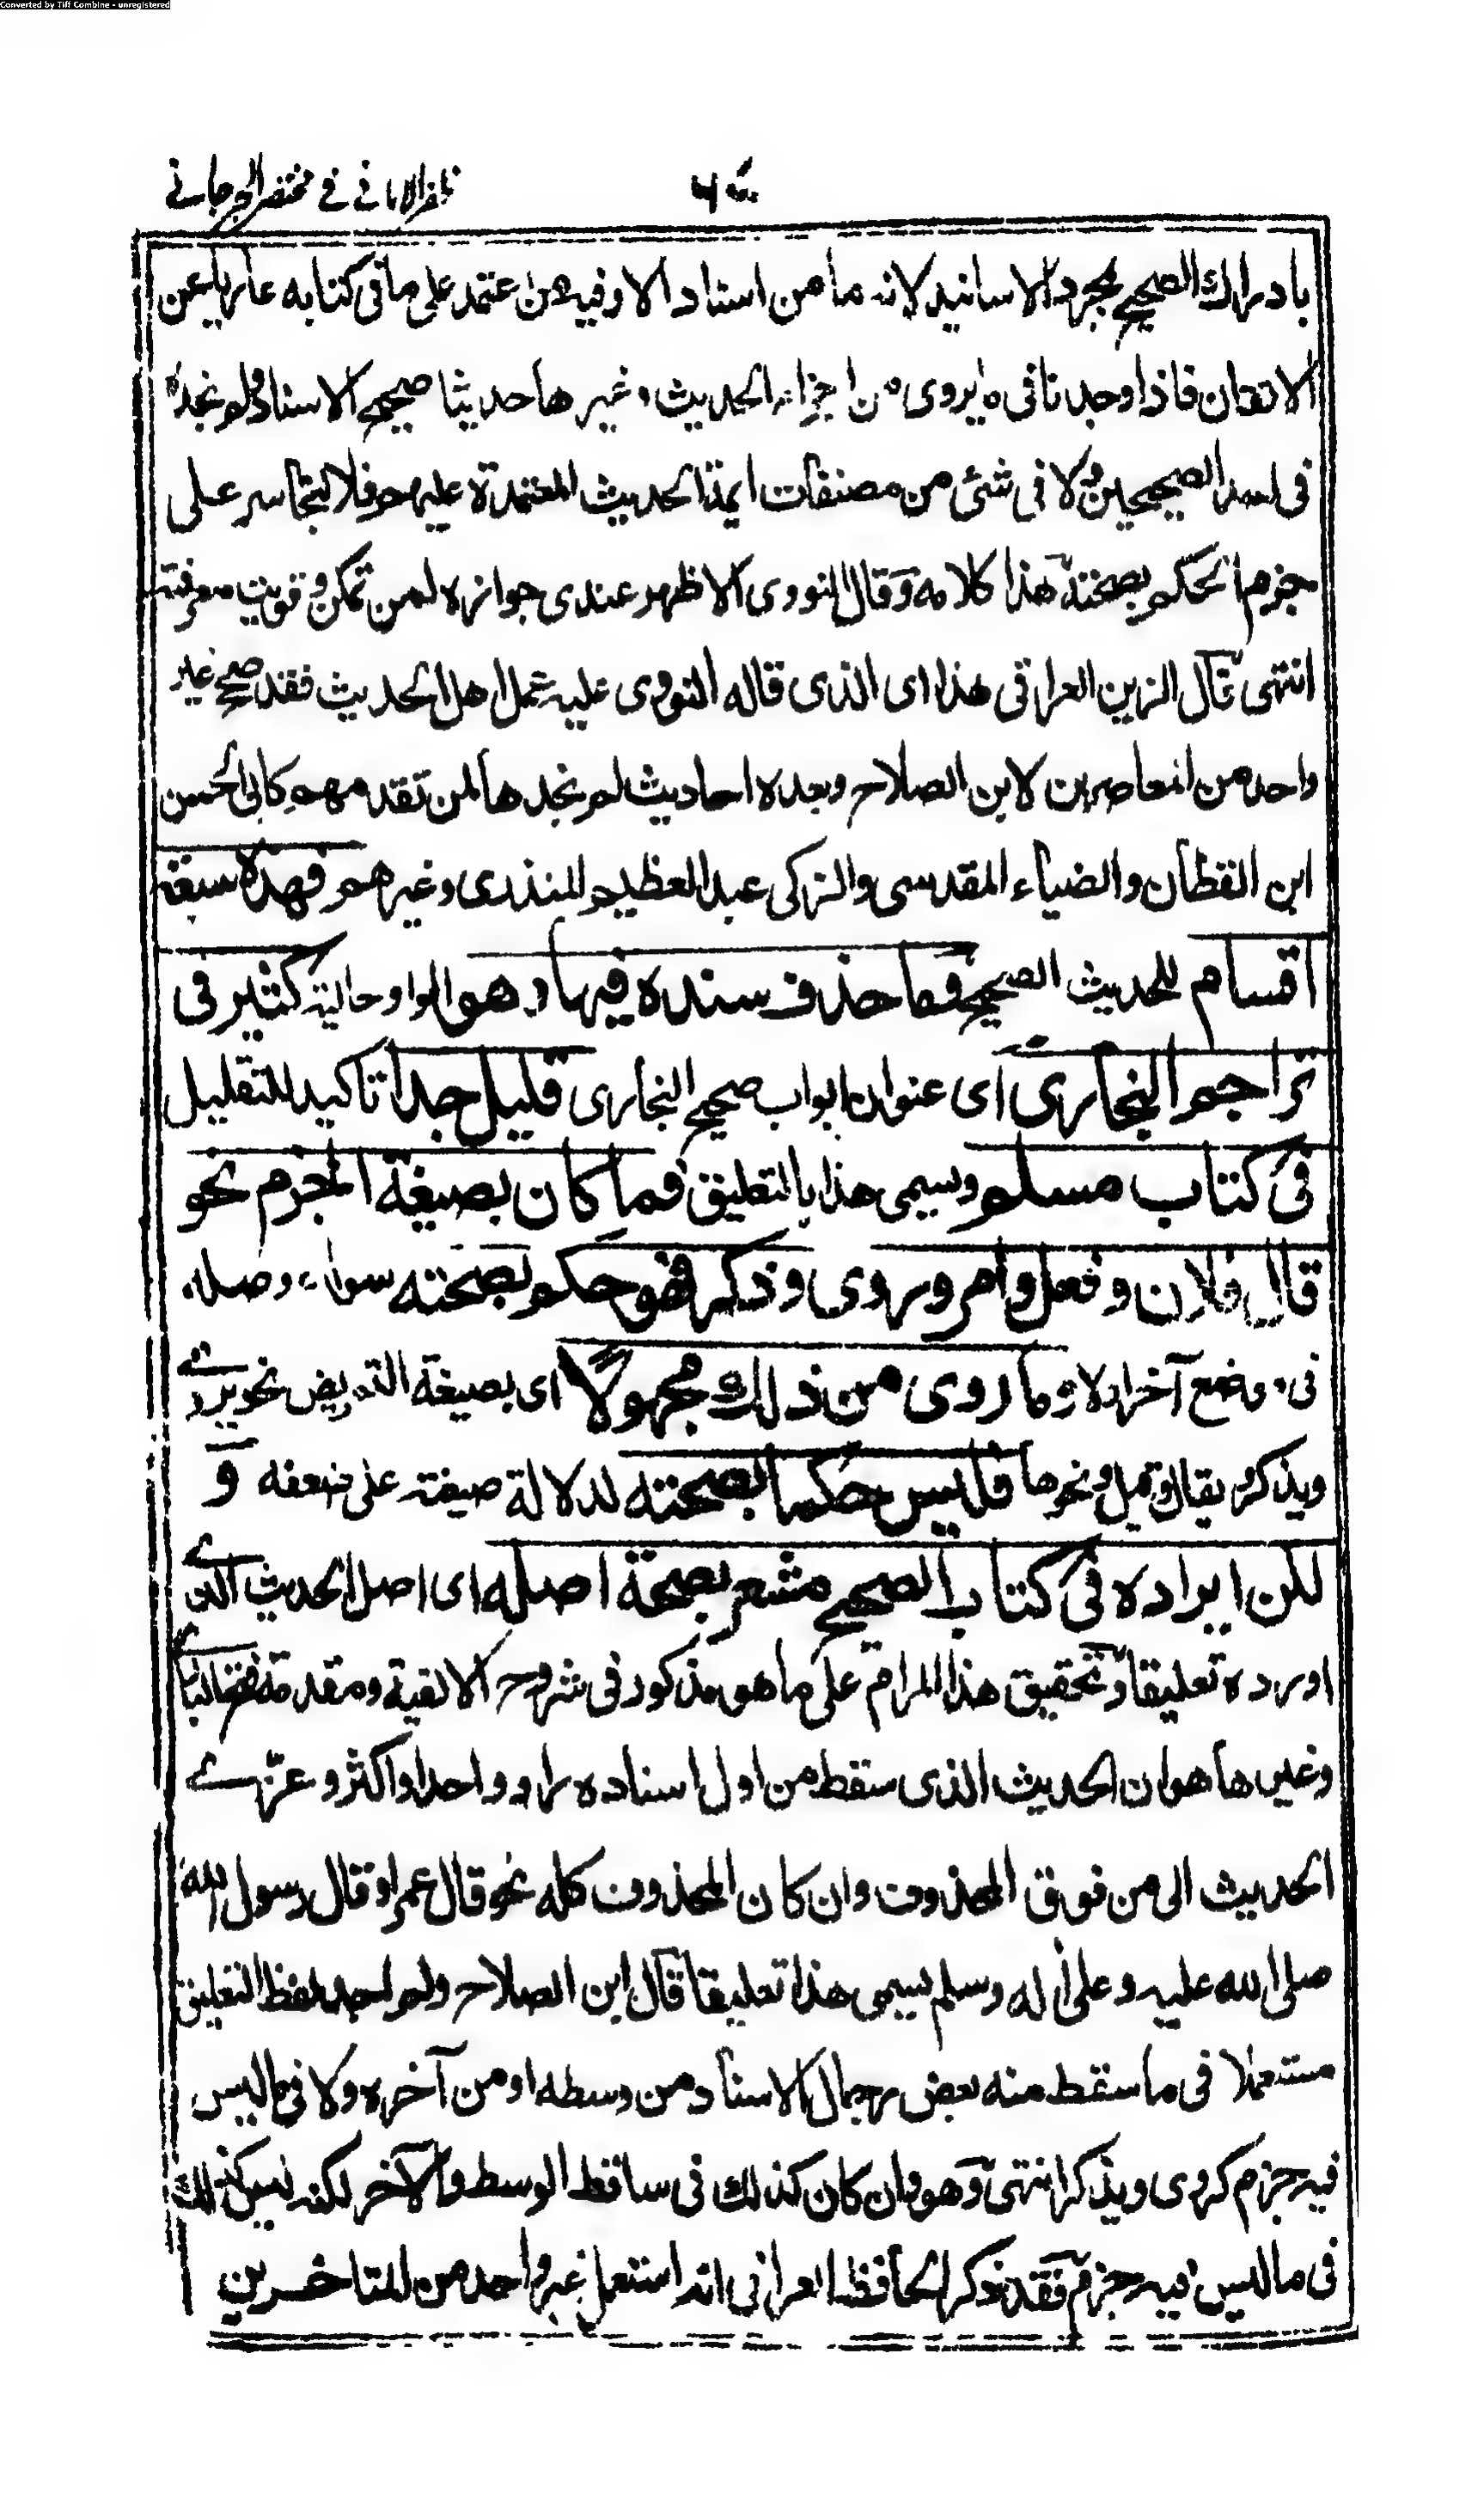 Converted by Tiff Combine - unregistered
ظفر الامانی فی مختصر الجرجانی
بادراك الصحیح بمجرد الاسانید لانه ما من اسناد الا وفیه من اعتمد علی ما فی کتابه عاریا عن
الاتقان فاذا وجدنا فی ما یروی من اجزاء الحدیث وغیرها حدیثا صحیح الاسناد ولم نجده
فی احد الصحیحین ولا فی شئ من مصنفات ایمة الحدیث المعتمدة علیهم فلا نتجاسر علی
جزم الحکم بصحته هذا کلامه وقال النووی الاظهر عندی جوازه لمن تمکن وقویت معرفته
انتهی قال الزین العراقی هذا ای الذی قاله النووی علیه عمل اهل الحدیث فقد صحح غیر
واحد من المعاصرین لابن الصلاح وبعده احادیث لم نجدها لمن تقدمهم کابی الحسن
ابن القطان والضیاء المقدسی والزکی عبد العظیم المنذری وغیرهم فهذه سبعة
اقسام للحدیث الصحیح فما حذف سنده فیها وهو الواو حالیة کثیر فی
تراجم البخاری ای عنوان ابواب صحیح البخاری قلیل جدا تاکید للتقلیل
فی کتاب مسلم ویسمی هذا بالتعلیق فما کان بصیغة الجزم نحو
قال فلان وفعل وامر وروی وذکر فهو حکم بصحته سواء وصله
فی موضع آخر او لا وما روی من ذلك مجهولا ای بصیغة التمریض نحو یروی
ویذکر ویقال وقیل ونحوها فلیس حکما بصحته لدلالة صیغته علی ضعفه و
لکن ایراده فی کتاب الصحیح مشعر بصحة اصله ای اصل الحدیث الذی
اورده تعلیقا وتحقیق هذا المرام علی ما هو مذکور فی شروح الالفیة ومقدمة فتح الباری
وغیرها هو ان الحدیث الذی سقط من اول اسناده راو واحد او اکثر وعزی
الحدیث الی من فوق المحذوف وان کان المحذوف کله نحو قال عمر او قال رسول الله
صلی الله علیه وعلی آله وسلم یسمی هذا تعلیقا قال ابن الصلاح ولم اجد لفظ التعلیق
مستعملا فی ما سقط منه بعض رجال الاسناد من وسطه او من آخره ولا فی ما لیس
فیه جزم کروی ویذکر انتهی وهو وان کان کذلك فی ساقط الوسط والآخر لکنه لیس کذلك
فی ما لیس فیه جزم فقد ذکر الحافظ العراقی انه استعمل غیر واحد من المتاخرین